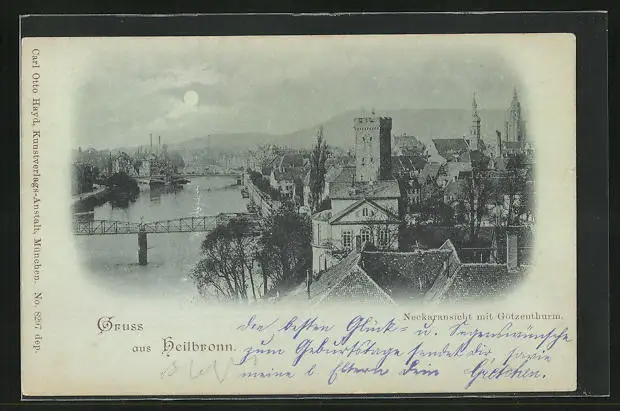 Carl Otto Hayd, Kunstverlags-Anstalt, München. No. 8297 dep.
Neckaransicht mit Götzenthurm.
Gruss
aus Heilbronn.
die besten Glück- u. Segenswünsche
zum Geburtstage sendet dir, sowie
meine l. Eltern dein Gretchen.